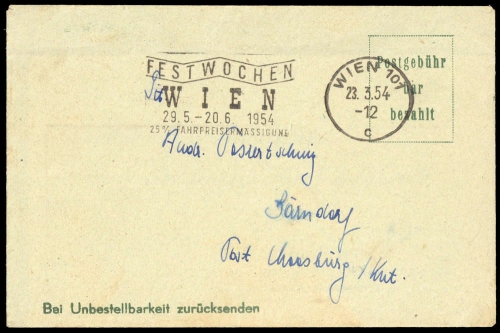 FESTWOCHEN
WIEN
29.5.-20.6. 1954
25% FAHRPREISERMÄSSIGUNG
WIEN 101
23. 3. 54
-12
c
Postgebühr
bar
bezahlt
Andr.
Bärndorf
Post Moosburg / Knt.
Bei Unbestellbarkeit zurücksenden